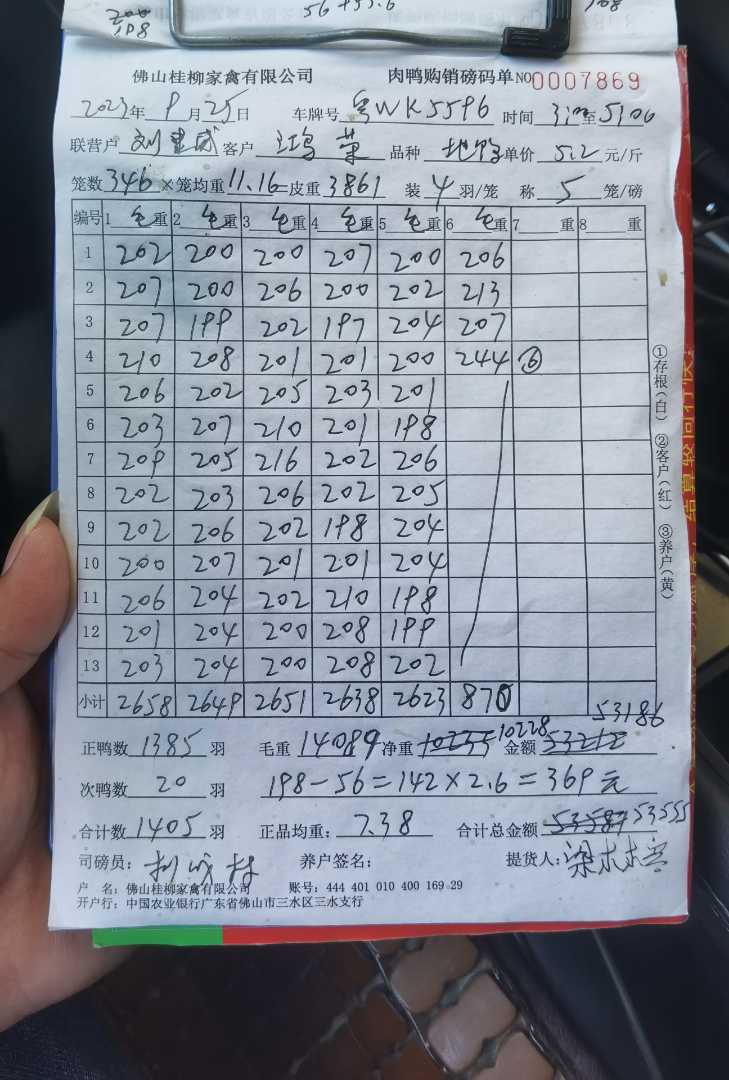 200
198
56+55.6
佛山桂柳家禽有限公司 肉鸭购销磅码单 NO 0007869
2023年 9月 25日 车牌号 粤WK5596 时间 至
联营户 刘 客户 江 品种 单价 5.2 元/斤
笼数 346 ×笼均重 11.16 皮重 3861 装 4 羽/笼 称 5 笼/磅
编号 1 毛重 2 毛重 3 毛重 4 毛重 5 毛重 6 毛重 7 重 8 重
1 202 200 200 207 200 206
2 207 200 206 200 202 213
3 207 199 202 197 204 207
4 210 208 201 201 200 244 ⑥
5 206 202 205 203 201
6 203 207 210 201 198
7 209 205 216 202 206
8 202 203 206 202 205
9 202 206 202 198 204
10 200 207 201 201 204
11 206 204 202 210 198
12 201 204 200 208 199
13 203 204 200 208 202
小计 2658 2649 2651 2638 2623 870
53186
正鸭数 1385 羽 毛重 14089 净重 10255 10228 金额 53212
次鸭数 20 羽 198-56=142×2.6=369元
合计数 1405 羽 正品均重: 7.38 合计总金额 53587 53555
司磅员: 养户签名: 提货人: 梁木
户 名: 佛山桂柳家禽有限公司 账号: 444 401 010 400 169 29
开户行: 中国农业银行广东省佛山市三水区三水支行
①存根(白) ②客户(红) ③养户(黄)